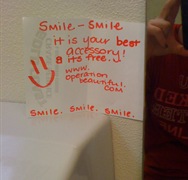 Smile - Smile
it is your best
accessory!
& its free..
www.
operation
beautiful.
com.
Smile. Smile. Smile.